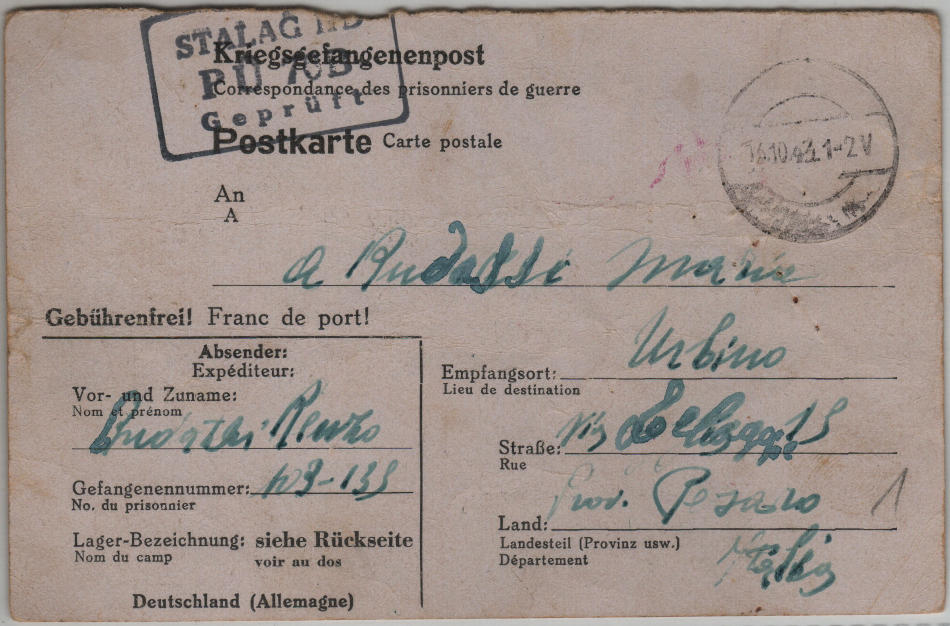 STALAG
PÜ 70B
Geprüft
Kriegsgefangenenpost
Correspondance des prisonniers de guerre
Postkarte Carte postale
1-2V
An
A
a Rudassi Maria
Gebührenfrei! Franc de port!
Absender:
Expéditeur:
Vor- und Zuname:
Nom et prénom
Renzo
Gefangenennummer:
No. du prisonnier
Lager-Bezeichnung: siehe Rückseite
Nom du camp voir au dos
Deutschland (Allemagne)
Urbino
Empfangsort:
Lieu de destination
Straße: Via
Rue
Prov. Pesaro
Land:
Landesteil (Provinz usw.)
Département
Italia
1